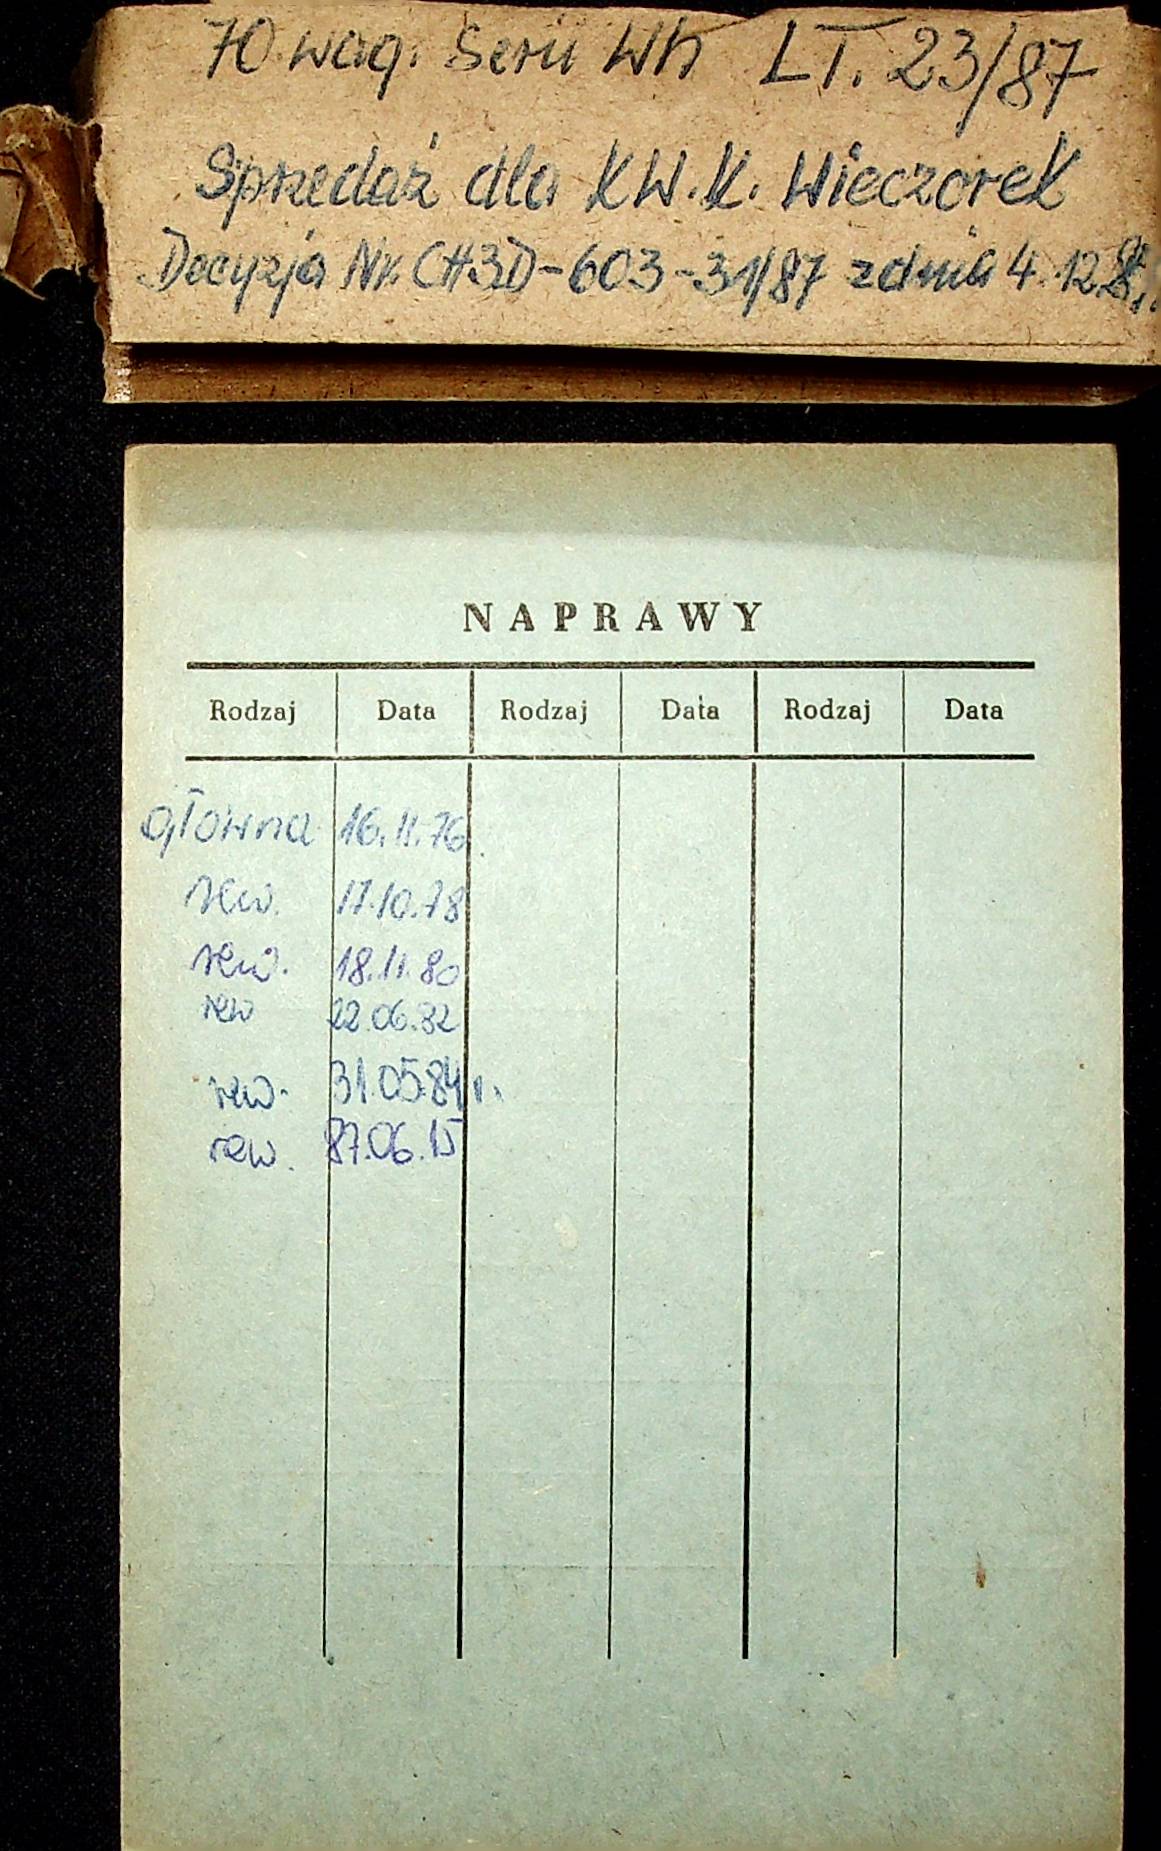 70 wag. Serii Wh LT. 23/87
Sprzedaż dla KW.K. Wieczorek
Decyzja Nr. CH3D-603-31/87 z dnia 4.12.
NAPRAWY
Rodzaj Data Rodzaj Data Rodzaj Data
główna 16.11.76.
rew. 17.10.78
rew. 18.11.80
rew 22.06.82
rew. 31.05.84 r.
rew. 87.06.15